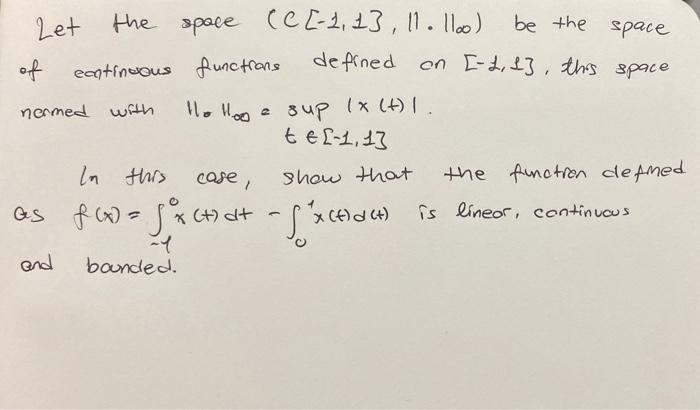 Let the space (C[-1,1], ||.||∞) be the space
of continuous functions defined on [-1,1], this space
normed with ||.||∞ = sup |x(t)|.
t ∈ [-1,1]
In this case, show that the function defined
as f(x) = ∫₋₁⁰ x(t) dt - ∫₀¹ x(t) d(t) is linear, continuous
and bounded.